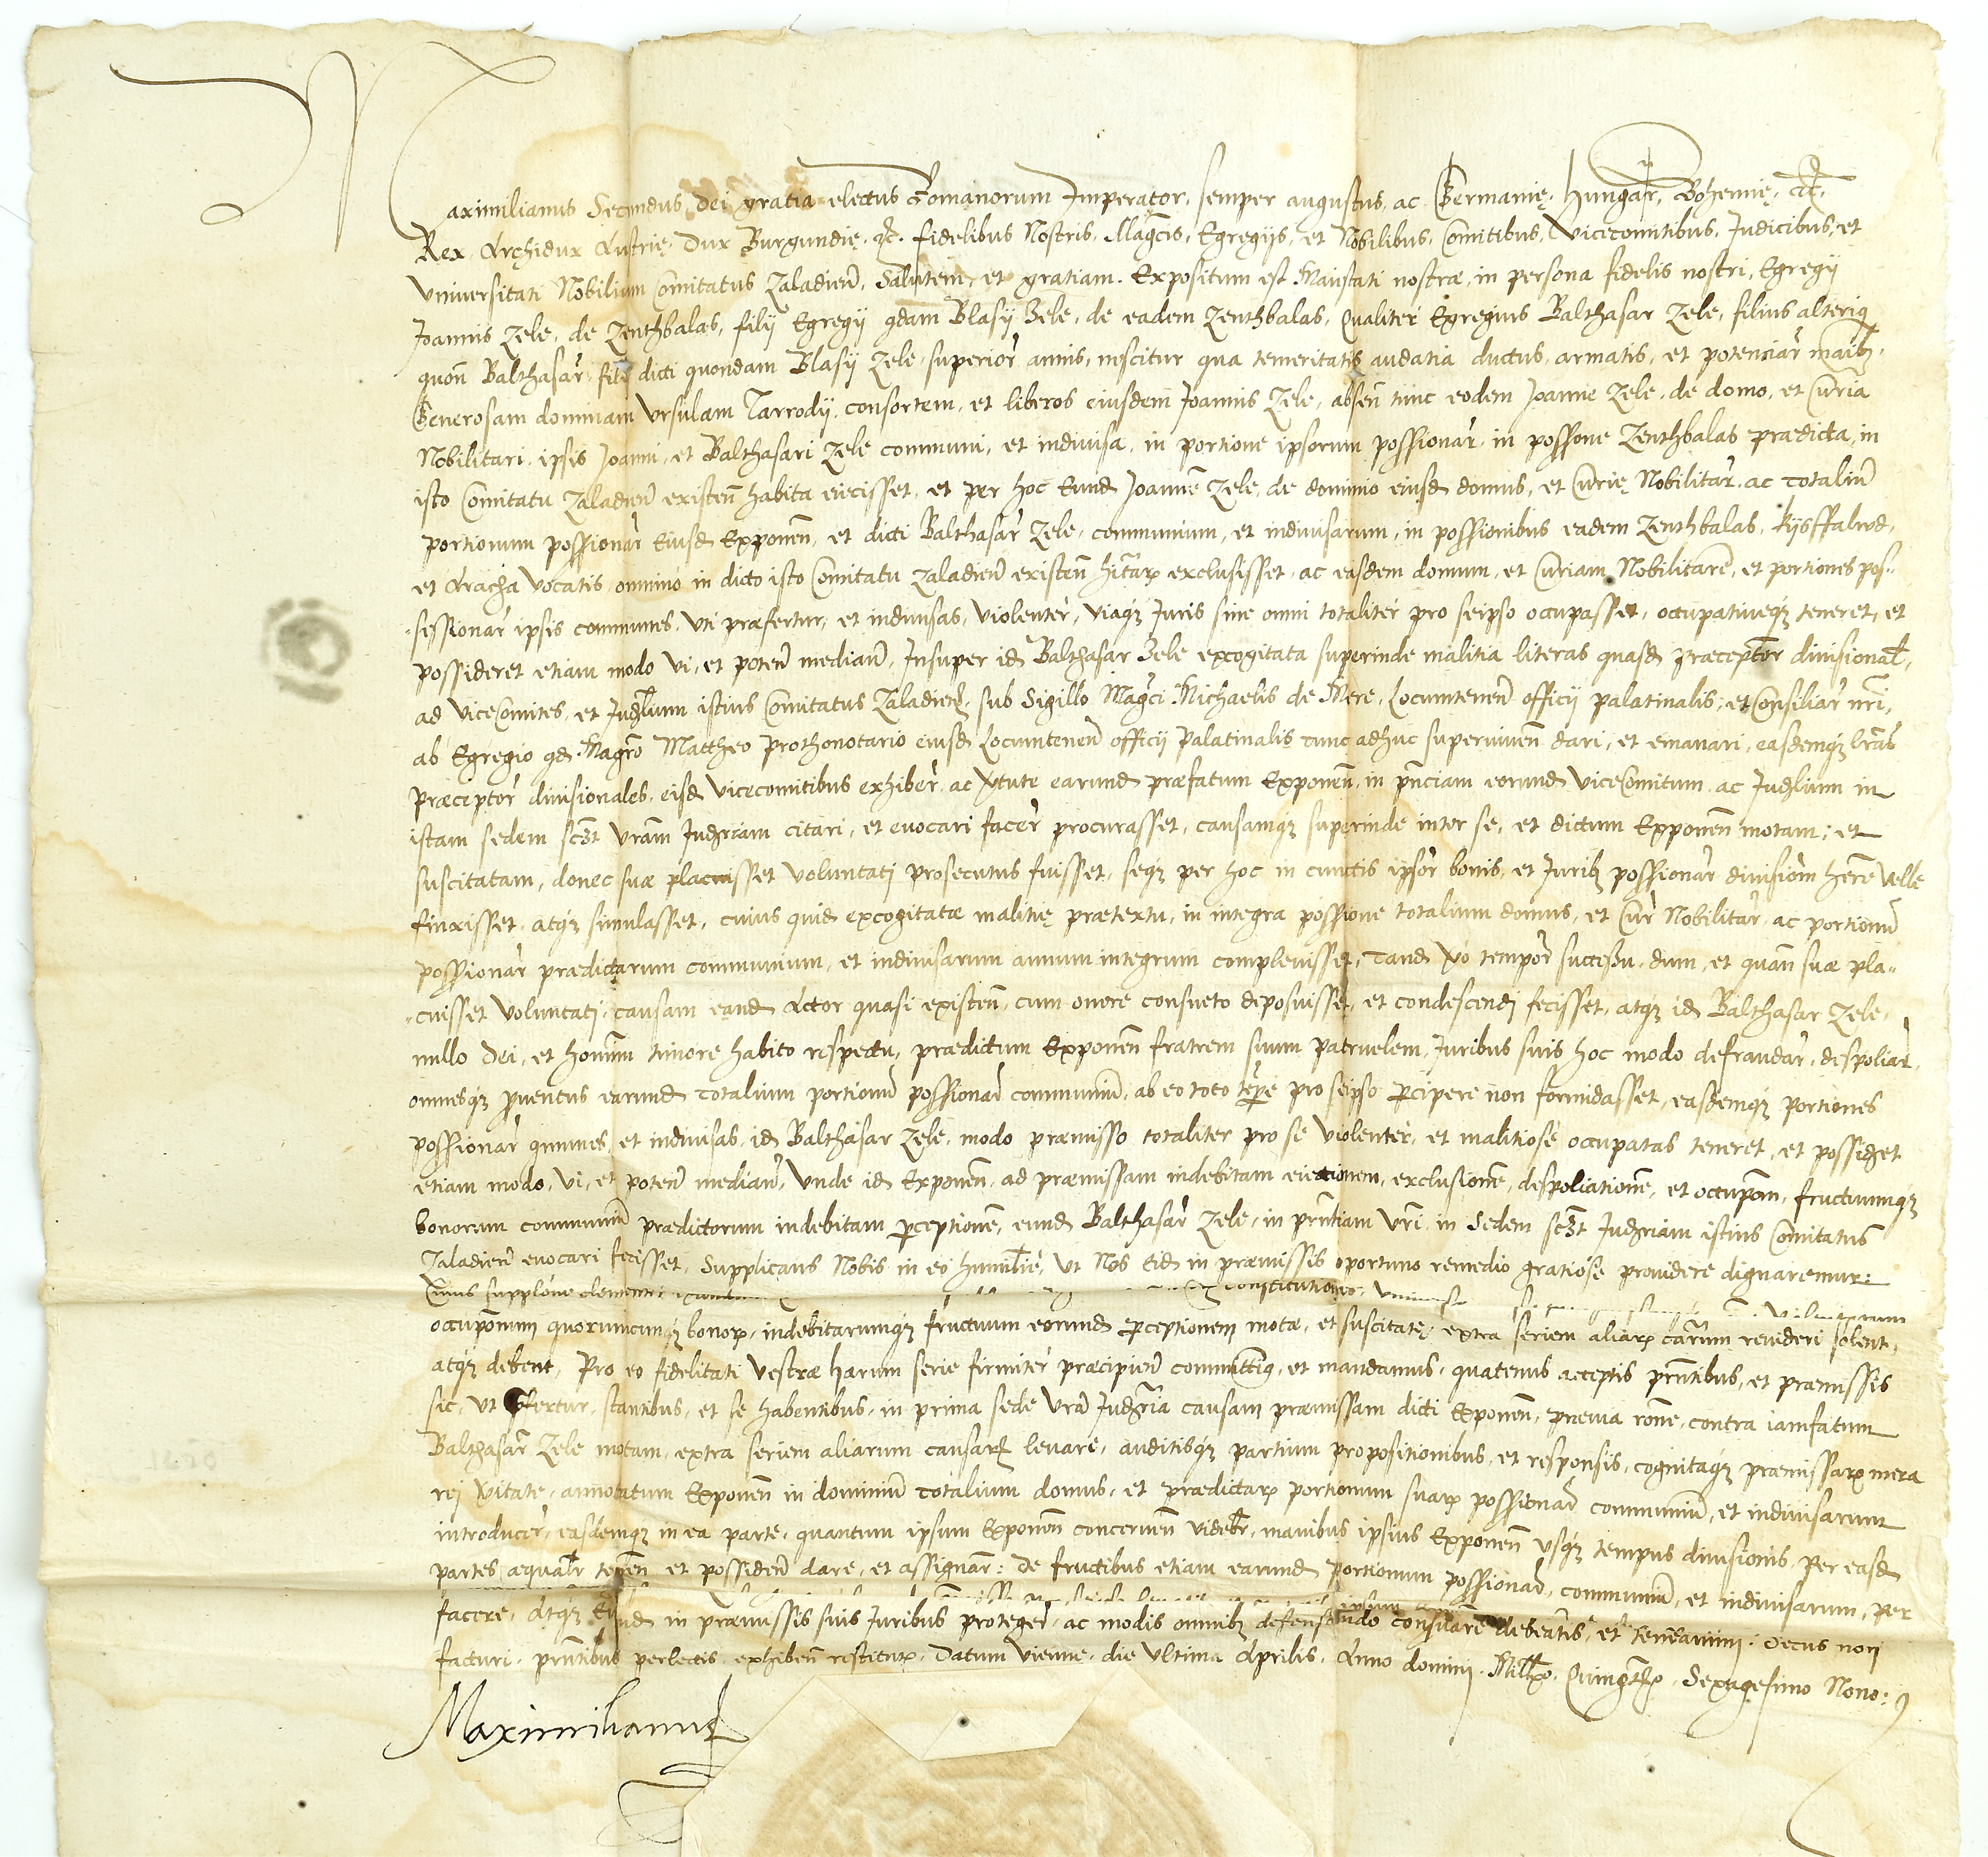 Maximilianus Secundus Dei gratia electus Romanorum Imperator, semper augustus, ac Germanię, Hungar, Bohemię, &c.
Rex Archidux Austrię, Dux Burgundię, &c. fidelibus Nostris, Magcis, Egregijs, et Nobilibus, Comitibus, Vicecomitibus, Judicibus, et
Vniuersitati Nobilium Comitatus Zaladien, Salutem, et gratiam. Expositum est Maiestati nostrae, in persona fidelis nostri, Egregij
Joannis Zele, de Zenthbalas, filij Egregij qdam Blasij Zele, de eadem Zenthbalas, Qualiter Egregius Balthasar Zele, filius alterius
quon Balthasar, filij dicti quondam Blasij Zele, superior annis, nescitur qua temeritatis audatia ductus, armatis, et potenciar maibz,
Generosam dominam Vrsulam Tarrodij, consortem, et liberos eiusdem Joannis Zele, absen tunc eodem Joanne Zele, de domo, et Curia
Nobilitari, ipsis Joanni, et Balthasari Zele communi, et indiuisa, in portione ipsorum possionar, in possone Zenthbalas praedicta, in
isto Comitatu Zaladien existen habita eiecisset, et per hoc Eund Joannem Zele, de dominio eiusd domus, et Curię Nobilitar, ac totaliu
portionum possionar Eiusd Exponen, et dicti Balthasar Zele, communium, et indiuisarum, in possionibus eadem Zenthbalas, Kysffalwd,
et Aracha vocatis omnino in dicto isto Comitatu Zaladien existen hitarum exclusisset, ac easdem domum, et Curiam Nobilitare, et portiones pos-
-sessionar ipsis communes, vti praefertur, et indiuisas, violenter, viaqz Juris sine omni totaliter pro seipso occupasset, occupatiueqz teneret, et
possideret etiam modo vi, et poten median, Insuper id Balthasar Zele excogitata superinde malitia literas quasd praeceptor diuisional,
ad ViceComites, et Judlium istius Comitatus Zaladien, sub Sigillo Magci Michaelis de Mere, Locumtenen officij palatinalis, et Consiliar nri,
ab Egregio qd Magro Mattheo Prothonotario eiusd Locumtenen officij Palatinalis tunc adhuc superuiuen dari, et emanari, easdemqz lras
praeceptor diuisionales, eisd vicecomitibus exhiber, ac vtute earund praefatum Exponen, in pnciam eorund ViceComitum ac Judlium in
istam sedem scz vram Judriam citari, et euocari facer procurasset, causamqz superinde inter se, et dictum Exponen motam, et
suscitatam, donec suae placuisset voluntati prosecutus fuisset, seqz per hoc in cunctis ipsor bonis, et Juribz possionar diuisiom here velle
finxisset, atqz simulasset, cuius quid excogitatae malitię praetextu, in integra possione totalium domus, et Cur Nobilitar, ac portionu
possionar praedictarum communium, et indiuisarum annum integrum compleuisset, Tand vo tempor successu, dum, et quan suae pla-
-cuisset voluntati, causam eand Actor quasi existen, cum onore consueto deposuisset, et condescendj fecisset, atqz id Balthasar Zele,
nullo Dei, et hominum timore habito respectu, praedictum Exponen fratrem suum patruelem, Juribus suis hoc modo defraudar, despoliar,
omnesqz prouentus earund totalium portionu possionar communiu, ab eo toto tempore pro seipso percipere non formidasset, easdemqz portiones
possionar communes, et indiuisas, id Balthasar Zele, modo praemisso totaliter pro se violenter, et malitiose occupatas teneret, et possidet
etiam modo, vi, et poten median, Vnde id Exponen, ad praemissam indebitam eiectionem, exclusione, despoliatione, et occupom, fructuumqz
bonorum communiu praedictorum indebitam perceptione, eund Balthasar Zele, in prntiam vri, in Sedem scz Judriam istius Comitatus
Zaladien euocari fecisset, Supplicans Nobis in eo humilie, vt Nos Eid in praemissis oportuno remedio gratiose prouidere dignaremur:
Cuius supplone clementi constitutiones
occuponum quorumcunqz bonorum, indebitarumqz fructuum eorund perceptionem motae, et suscitatę, extra seriem aliarum carum reuideri solent,
atqz debent, Pro eo fidelitati Vestrae harum serie firmiter praecipien committimus, et mandamus, quatenus acceptis prntibus, et praemissis
sic, vt pfertur, stantibus, et se habentibus, in prima sede vra Judria causam praemissam dicti Exponen, praeuia rone, contra iamfatum
Balthasar Zele motam, extra seriem aliarum causarum leuare, auditisqz partium propositionibus, et responsis, cognitaqz praemissarum mera
rei vitate, annotatum Exponen in dominiu totalium domus, et praedictarum portionum suarum possionar communiu, et indiuisarum
introducer, easdemqz in ea parte, quantum ipsum Exponen concernen videbr, manibus ipsius Exponen vsqz tempus diuisionis, per easd
partes aequalr tenen et possiden dare, et assignar: de fructibus etiam earund portionum possionar, communiu, et indiuisarum, per
facere, Atqz Eund in praemissis suis Juribus proteger, ac modis omnibz defensando consuare debeatis, et teneamini. Secus non
facturi, prntibus perlectis exhiben restitutis. Datum Vienne, die vltima Aprilis, Anno domini, Millmo, Quingmo, Sexagesimo Nono:
Maximilianus